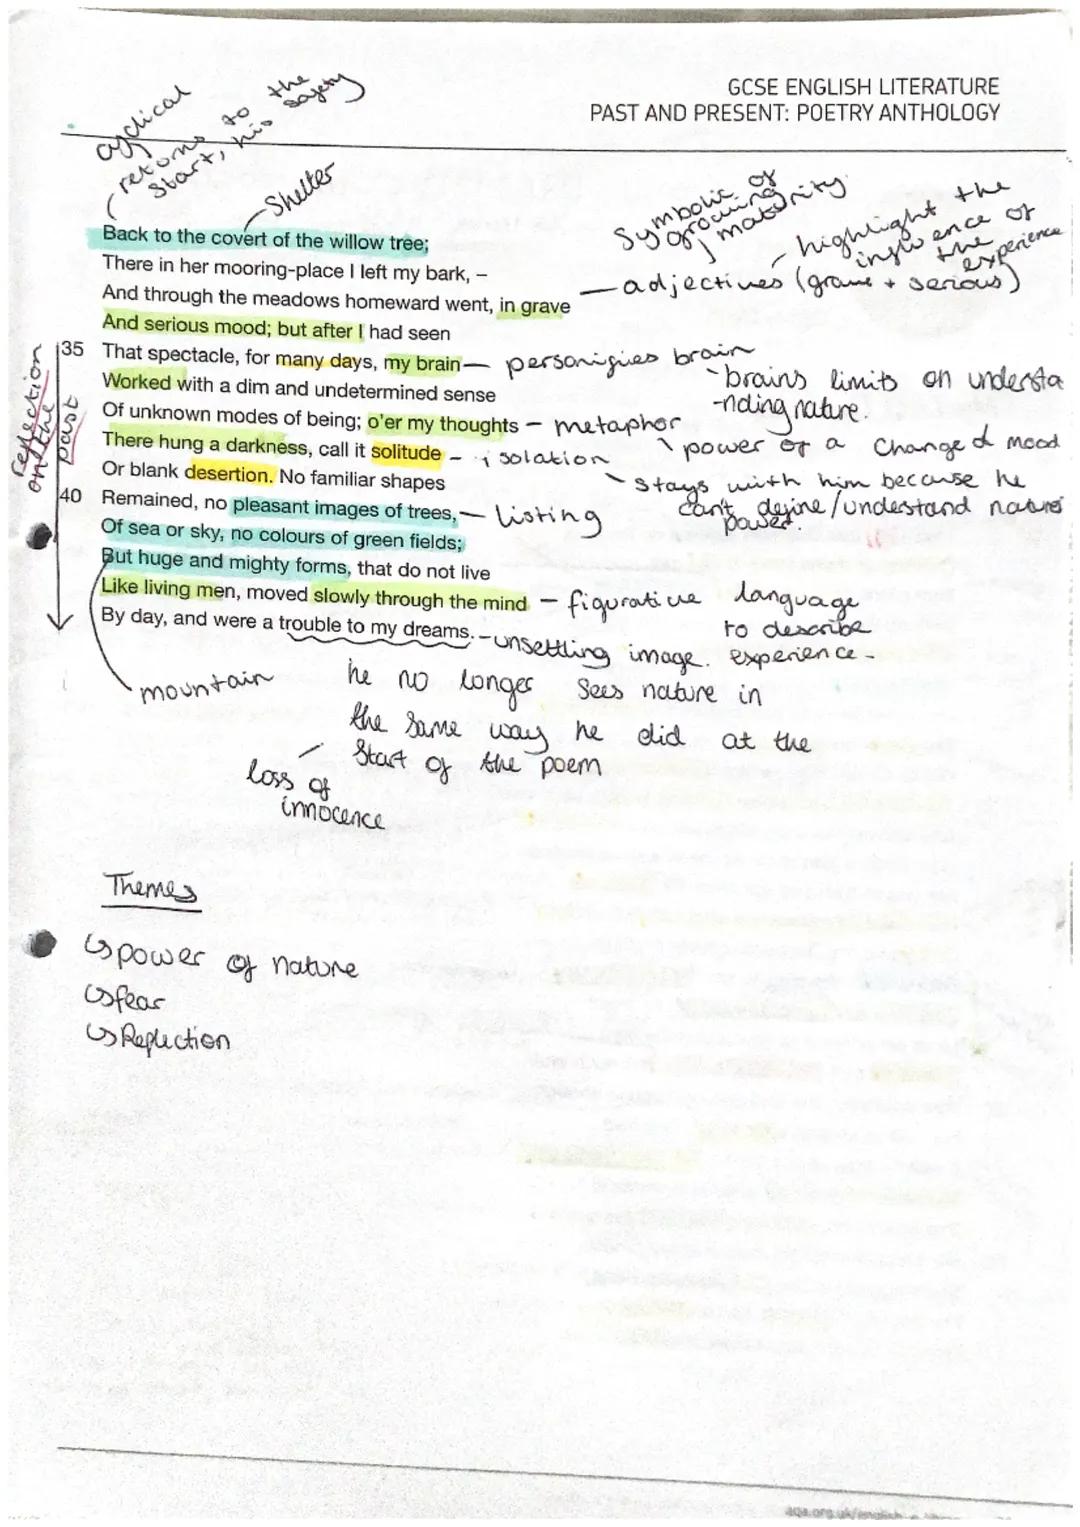 GCSE ENGLISH LITERATURE
PAST AND PRESENT: POETRY ANTHOLOGY
cyclical
returns to the
start, his safety
Shelter
Symbolic of
growing
maturity.
highlight the
influence of
the
experience
adjectives (grave + serious)
Back to the covert of the willow tree;
There in her mooring-place I left my bark, –
And through the meadows homeward went, in grave
And serious mood; but after I had seen
35 That spectacle, for many days, my brain
Worked with a dim and undetermined sense
Of unknown modes of being; o'er my thoughts
There hung a darkness, call it solitude
Or blank desertion. No familiar shapes
40 Remained, no pleasant images of trees,
Of sea or sky, no colours of green fields;
But huge and mighty forms, that do not live
Like living men, moved slowly through the mind
By day, and were a trouble to my dreams.
reflection
on the
past
personifies brain
brains limits on understa
-nding nature.
metaphor
power of a changed mood
isolation
stays with him because he
can't define/understand natures
power.
listing
figurative language
to describe
experience.
unsettling image.
mountain
he no longer sees nature in
the same way he did at the
start of the poem
loss of
innocence
Themes
↳ power of nature
↳ fear
↳ Reflection